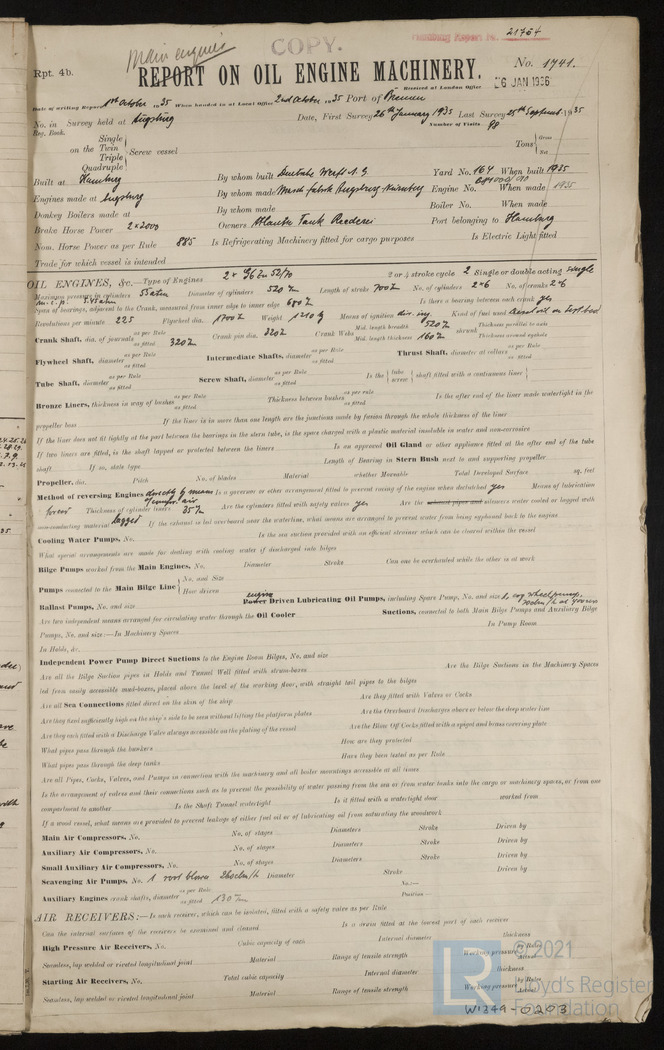 Main engines
COPY.
Hamburg Report No. 21764
Rpt. 4b.
No. 1741.
REPORT ON OIL ENGINE MACHINERY.
Received at London Office
6 JAN 1936
Date of writing Report 1st October 1935 When handed in at Local Office 2nd October 1935 Port of Bremen
No. in Survey held at Augsburg Date, First Survey 26th January 1935 Last Survey 25th September 1935
Reg. Book. Number of Visits 98
Single
on the Twin
Triple
Quadruple
Screw vessel
Tons Gross
Net
Built at Hamburg By whom built Deutsche Werft A.G. Yard No. 164 When built 1935
Engines made at Augsburg By whom made Masch. fabrik Augsburg-Nürnberg Engine No. When made 1935
Donkey Boilers made at By whom made Boiler No. When made
Brake Horse Power 2x2000 Owners Atlantic Tank Reederei Port belonging to Hamburg
Nom. Horse Power as per Rule 885 Is Refrigerating Machinery fitted for cargo purposes Is Electric Light fitted
Trade for which vessel is intended
OIL ENGINES, &c.—Type of Engines 2 x G6Zu 52/70 2 or 4 stroke cycle 2 Single or double acting single
Maximum pressure in cylinders 55 atm Diameter of cylinders 520 Length of stroke 700 No. of cylinders 2x6 No. of cranks 2x6
m.i.p. 5.45 atm
Span of bearings, adjacent to the Crank, measured from inner edge to inner edge 680 Is there a bearing between each crank yes
Revolutions per minute 225 Flywheel dia. 1700 Weight Means of ignition dir. inj. Kind of fuel used diesel oil on test bed
Crank Shaft, dia. of journals as per Rule as fitted 320 Crank pin dia. 320 Crank Webs Mid. length breadth 520 Mid. length thickness 160 shrunk Thickness parallel to axis Thickness around eyehole
Flywheel Shaft, diameter as per Rule as fitted Intermediate Shafts, diameter as per Rule as fitted Thrust Shaft, diameter at collars as per Rule as fitted
Tube Shaft, diameter as per Rule as fitted Screw Shaft, diameter as per Rule as fitted Is the tube screw shaft fitted with a continuous liner
Bronze Liners, thickness in way of bushes as per Rule as fitted Thickness between bushes as per rule as fitted Is the after end of the liner made watertight in the
propeller boss If the liner is in more than one length are the junctions made by fusion through the whole thickness of the liner
If the liner does not fit tightly at the part between the bearings in the stern tube, is the space charged with a plastic material insoluble in water and non-corrosive
If two liners are fitted, is the shaft lapped or protected between the liners Is an approved Oil Gland or other appliance fitted at the after end of the tube
shaft If so, state type Length of Bearing in Stern Bush next to and supporting propeller
Propeller, dia. Pitch No. of blades Material whether Moveable Total Developed Surface sq. feet
Method of reversing Engines directly by means of compr. air Is a governor or other arrangement fitted to prevent racing of the engine when declutched yes Means of lubrication
forced Thickness of cylinder liners 35 Are the cylinders fitted with safety valves yes Are the exhaust pipes and silencers water cooled or lagged with
non-conducting material lagged If the exhaust is led overboard near the waterline, what means are arranged to prevent water from being syphoned back to the engine
Cooling Water Pumps, No. Is the sea suction provided with an efficient strainer which can be cleared within the vessel
What special arrangements are made for dealing with cooling water if discharged into bilges
Bilge Pumps worked from the Main Engines, No. Diameter Stroke Can one be overhauled while the other is at work
Pumps connected to the Main Bilge Line No. and Size
How driven
Ballast Pumps, No. and size engine Power Driven Lubricating Oil Pumps, including Spare Pump, No. and size
Are two independent means arranged for circulating water through the Oil Cooler Suctions, connected to both Main Bilge Pumps and Auxiliary Bilge
Pumps, No. and size:—In Machinery Spaces In Pump Room
In Holds, &c.
Independent Power Pump Direct Suctions to the Engine Room Bilges, No. and size
Are all the Bilge Suction pipes in Holds and Tunnel Well fitted with strum-boxes Are the Bilge Suctions in the Machinery Spaces
led from easily accessible mud-boxes, placed above the level of the working floor, with straight tail pipes to the bilges
Are all Sea Connections fitted direct on the skin of the ship Are they fitted with Valves or Cocks
Are they fixed sufficiently high on the ship's side to be seen without lifting the platform plates Are the Overboard Discharges above or below the deep water line
Are they each fitted with a Discharge Valve always accessible on the plating of the vessel Are the Blow Off Cocks fitted with a spigot and brass covering plate
What pipes pass through the bunkers How are they protected
What pipes pass through the deep tanks Have they been tested as per Rule
Are all Pipes, Cocks, Valves, and Pumps in connection with the machinery and all boiler mountings accessible at all times
Is the arrangement of valves and their connections such as to prevent the possibility of water passing from the sea or from water tanks into the cargo or machinery spaces, or from one
compartment to another Is the Shaft Tunnel watertight Is it fitted with a watertight door worked from
If a wood vessel, what means are provided to prevent leakage of either fuel oil or of lubricating oil from saturating the woodwork
Main Air Compressors, No. No. of stages Diameters Stroke Driven by
Auxiliary Air Compressors, No. No. of stages Diameters Stroke Driven by
Small Auxiliary Air Compressors, No. No. of stages Diameters Stroke Driven by
Scavenging Air Pumps, No. 1 root blower Diameter Stroke Driven by
Auxiliary Engines crank shafts, diameter as per Rule as fitted 130 No.:— Position:—
AIR RECEIVERS:—Is each receiver, which can be isolated, fitted with a safety valve as per Rule
Can the internal surfaces of the receivers be examined and cleaned Is a drain fitted at the lowest part of each receiver
High Pressure Air Receivers, No. Cubic capacity of each Internal diameter thickness
Seamless, lap welded or riveted longitudinal joint Material Range of tensile strength Working pressure by Rules Actual
Starting Air Receivers, No. Total cubic capacity Internal diameter thickness
Seamless, lap welded or riveted longitudinal joint Material Range of tensile strength Working pressure by Rules Actual
© 2021
Lloyd's Register
Foundation
W1349-0203